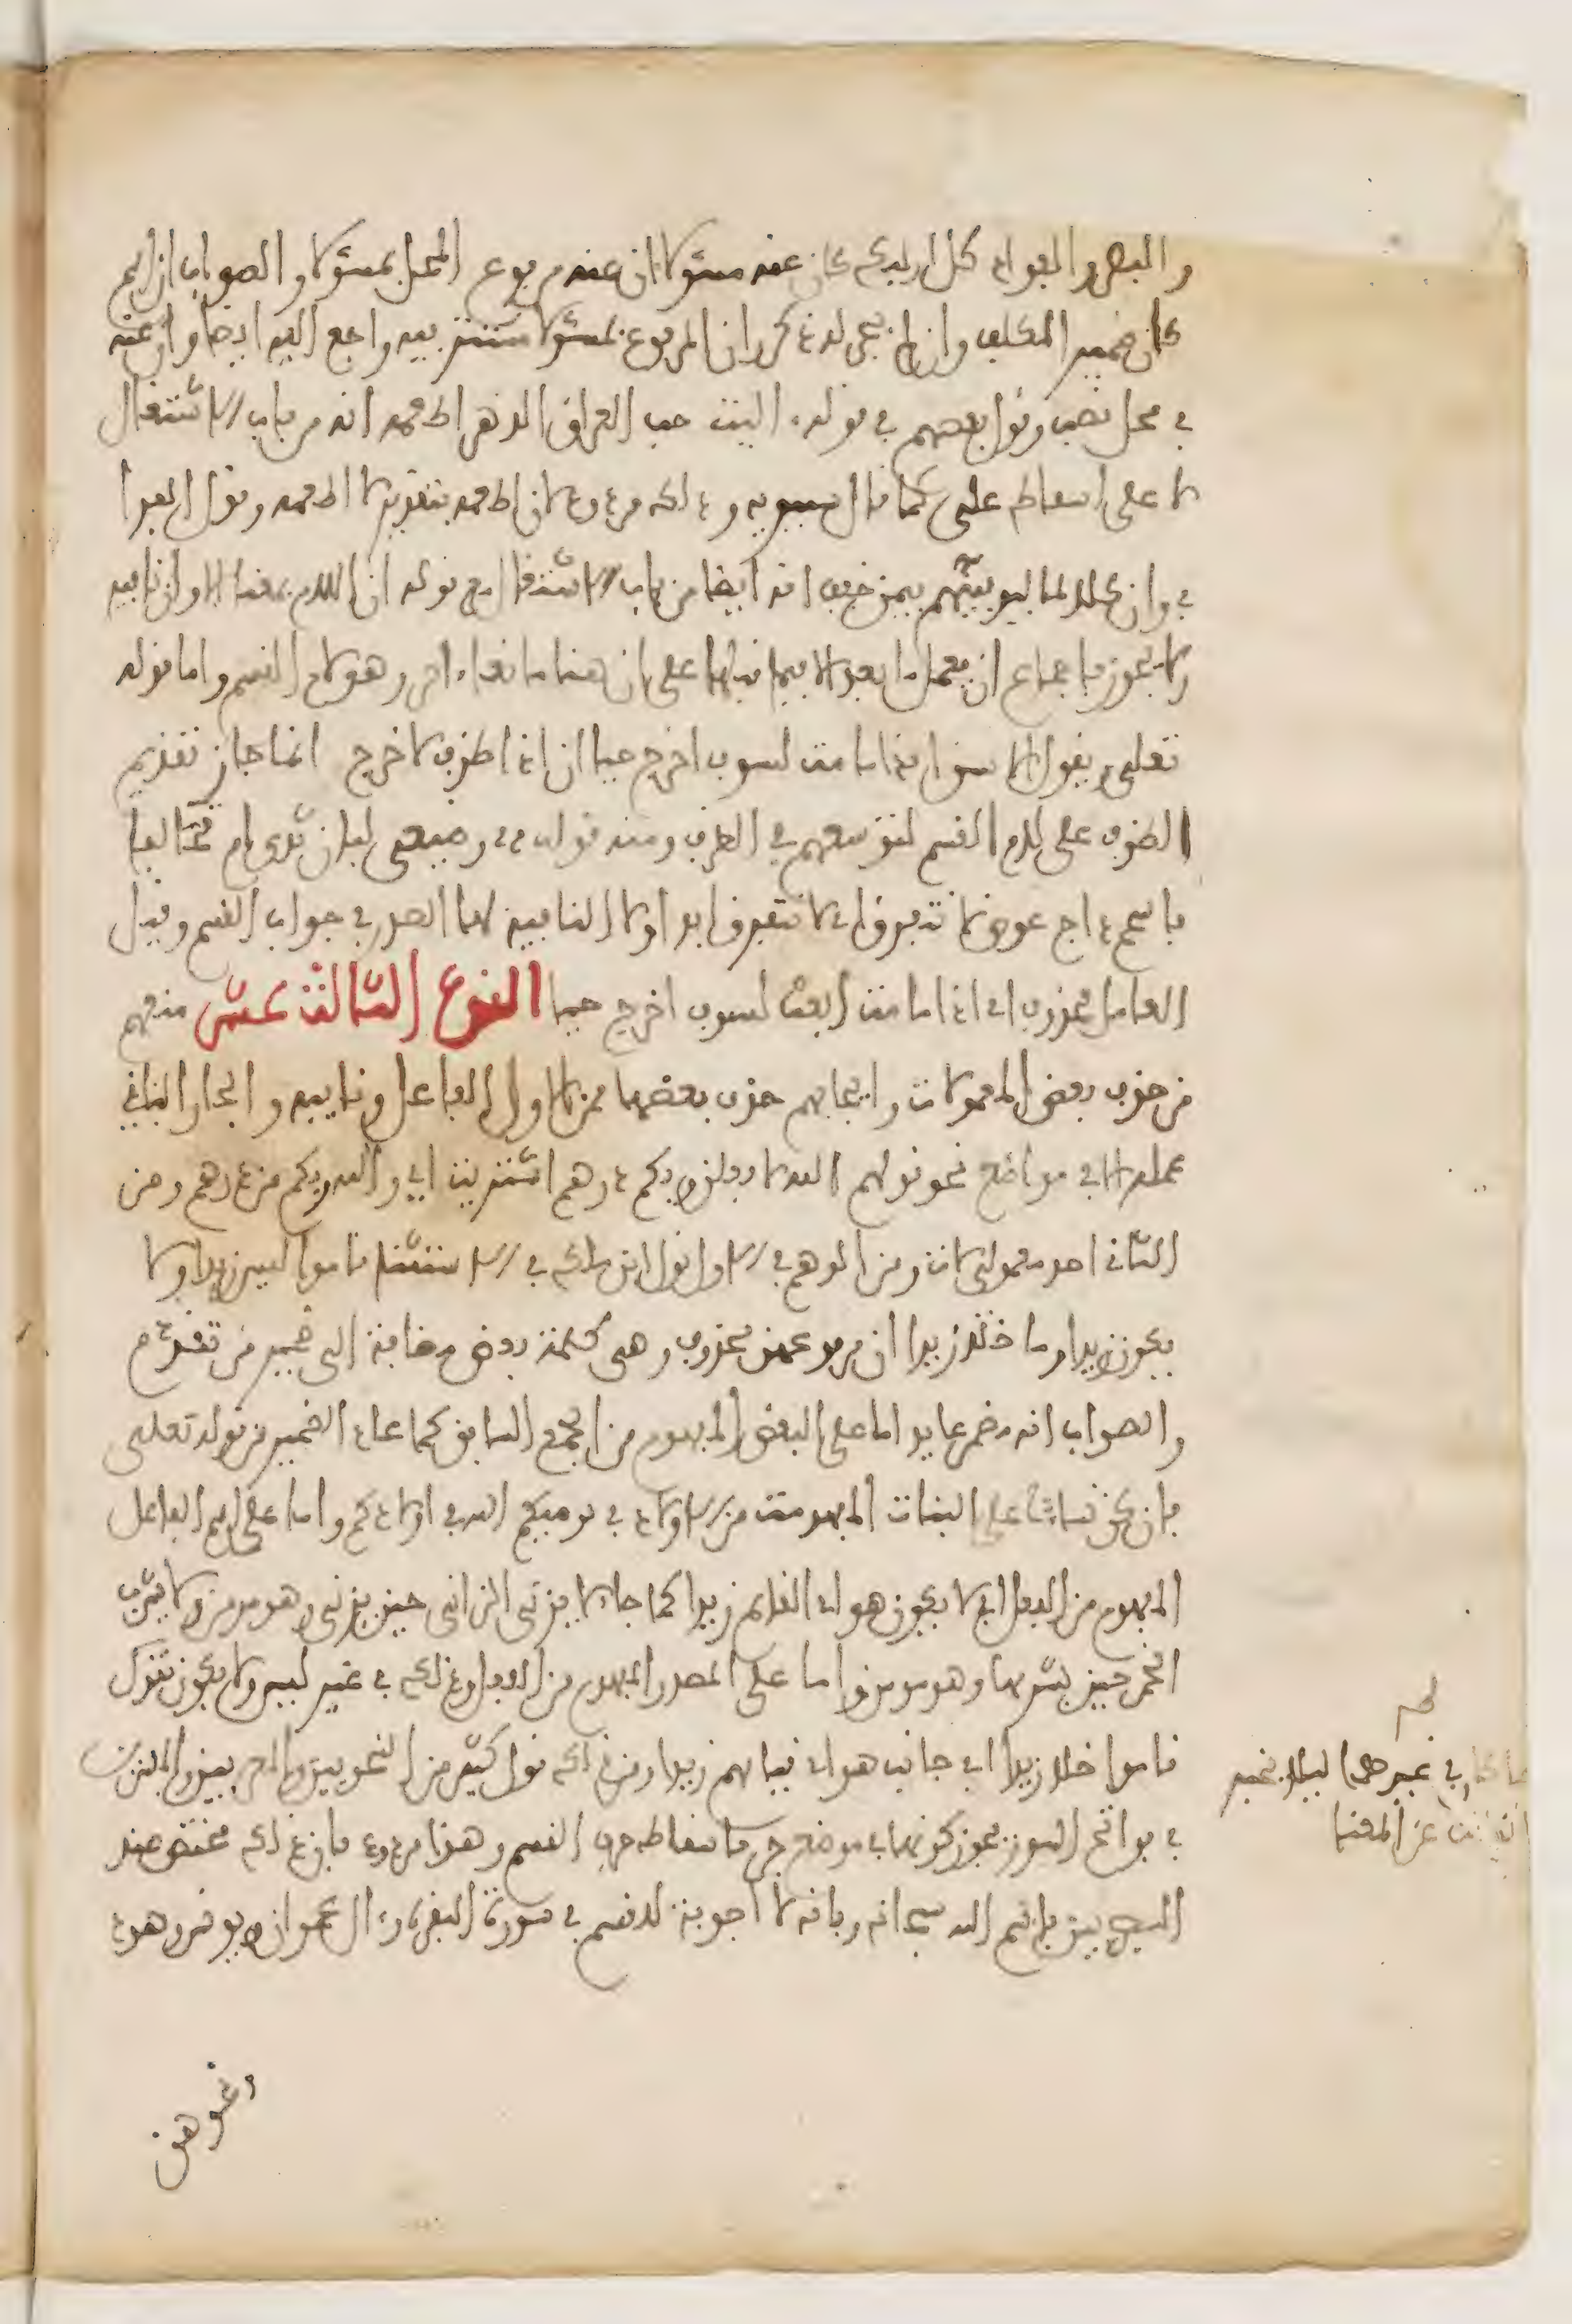 والبصر والفواد كل اوليك كان عنه مسئولا ان عنه مرفوع المحل بمسئولا والصواب ان اسم
كان ضمير المكلف وان لم يجر له ذكر وان المرفوع بمسئولا مستتر فيه راجع اليه ايضا وان عنه
في محل نصب وقول بعضهم في قوله، اليت حب العراق الدهر اطعمه انه من باب الاشتغال
لا على اسقاط على كما قال سيبويه وذلك مردود لان اطعمه بتقدير لا اطعمه وقول الفرا
في وان كلا لما ليوفينهم فيمن خفف انه ايضا من باب الاشتغال مع قوله ان اللام بمعنا الا وان نافيه
ولا يجوز باجماع ان يعمل ما بعد الا فيما قبلها على ان هنا مانعا ءاخر وهو لام القسم واما قوله
تعلى ويقول الانسان ءاذا ما مت لسوف اخرج حيا ان اذا ظرف لاخرج انما جاز تقديم
الظرف على لام القسم لتوسعهم في الظرف ومنه قوله، رضيعى لبان ثدى ام تحالفا
باسحم داج عوض لا نتفرق اى لا نتفرق ابدا ولا النافية لها الصدر في جواب القسم وقيل
العامل محذوف اى اذا ما مت ابعث لسوف اخرج حيا النوع الثالث عشر منعهم
من حذف بعض المعمولات وايجابهم حذف بعضها فمن الاول الفاعل ونايبه والجار الباقي
عمله الا في مواضع نحو قولهم الله لافعلن وبكم درهم اشتريت اي والله وبكم من درهم ومن
الثاني احد معمولى لات ومن الوهم في الاول قول ابن مالك في الاستثنا قاموا ليس زيدا ولا
يكون زيدا وما خلا زيدا ان مرفوعهن محذوف وهى كلمة بعض مضافة الى ضمير من تقدم
والصواب انه مضمر عايد اما على البعض المفهوم من الجمع السابق كما عاد الضمير من قوله تعلى
فان كن نساء على البنات المفهومة من الاولاد في يوصيكم الله في اولادكم واما على اسم الفاعل
المفهوم من الفعل اي لا يكون هو اى القايم زيدا كما جا لا يزنى الزانى حين يزنى وهو مومن ولا يشرب
الخمر حين يشربها وهو مومن واما على المصدر المفهوم من الفعل وذلك في غير ليس ولا يكون تقول
قاموا خلا زيدا اي جانب هو اى قيامهم زيدا ومن ذلك قول كثير من النحويين والمعربين والمفسرين
في فواتح السور يجوز كونها في موضع جر باسقاط حرف القسم وهذا مردود بان ذلك مختص عند
البصريين باسم الله سبحانه وبانه لا اجوبة للقسم في سورة البقرة وءال عمران ويونس وهود
ونحوهن
في غير هذا ليلا يتغير
عن المعنا